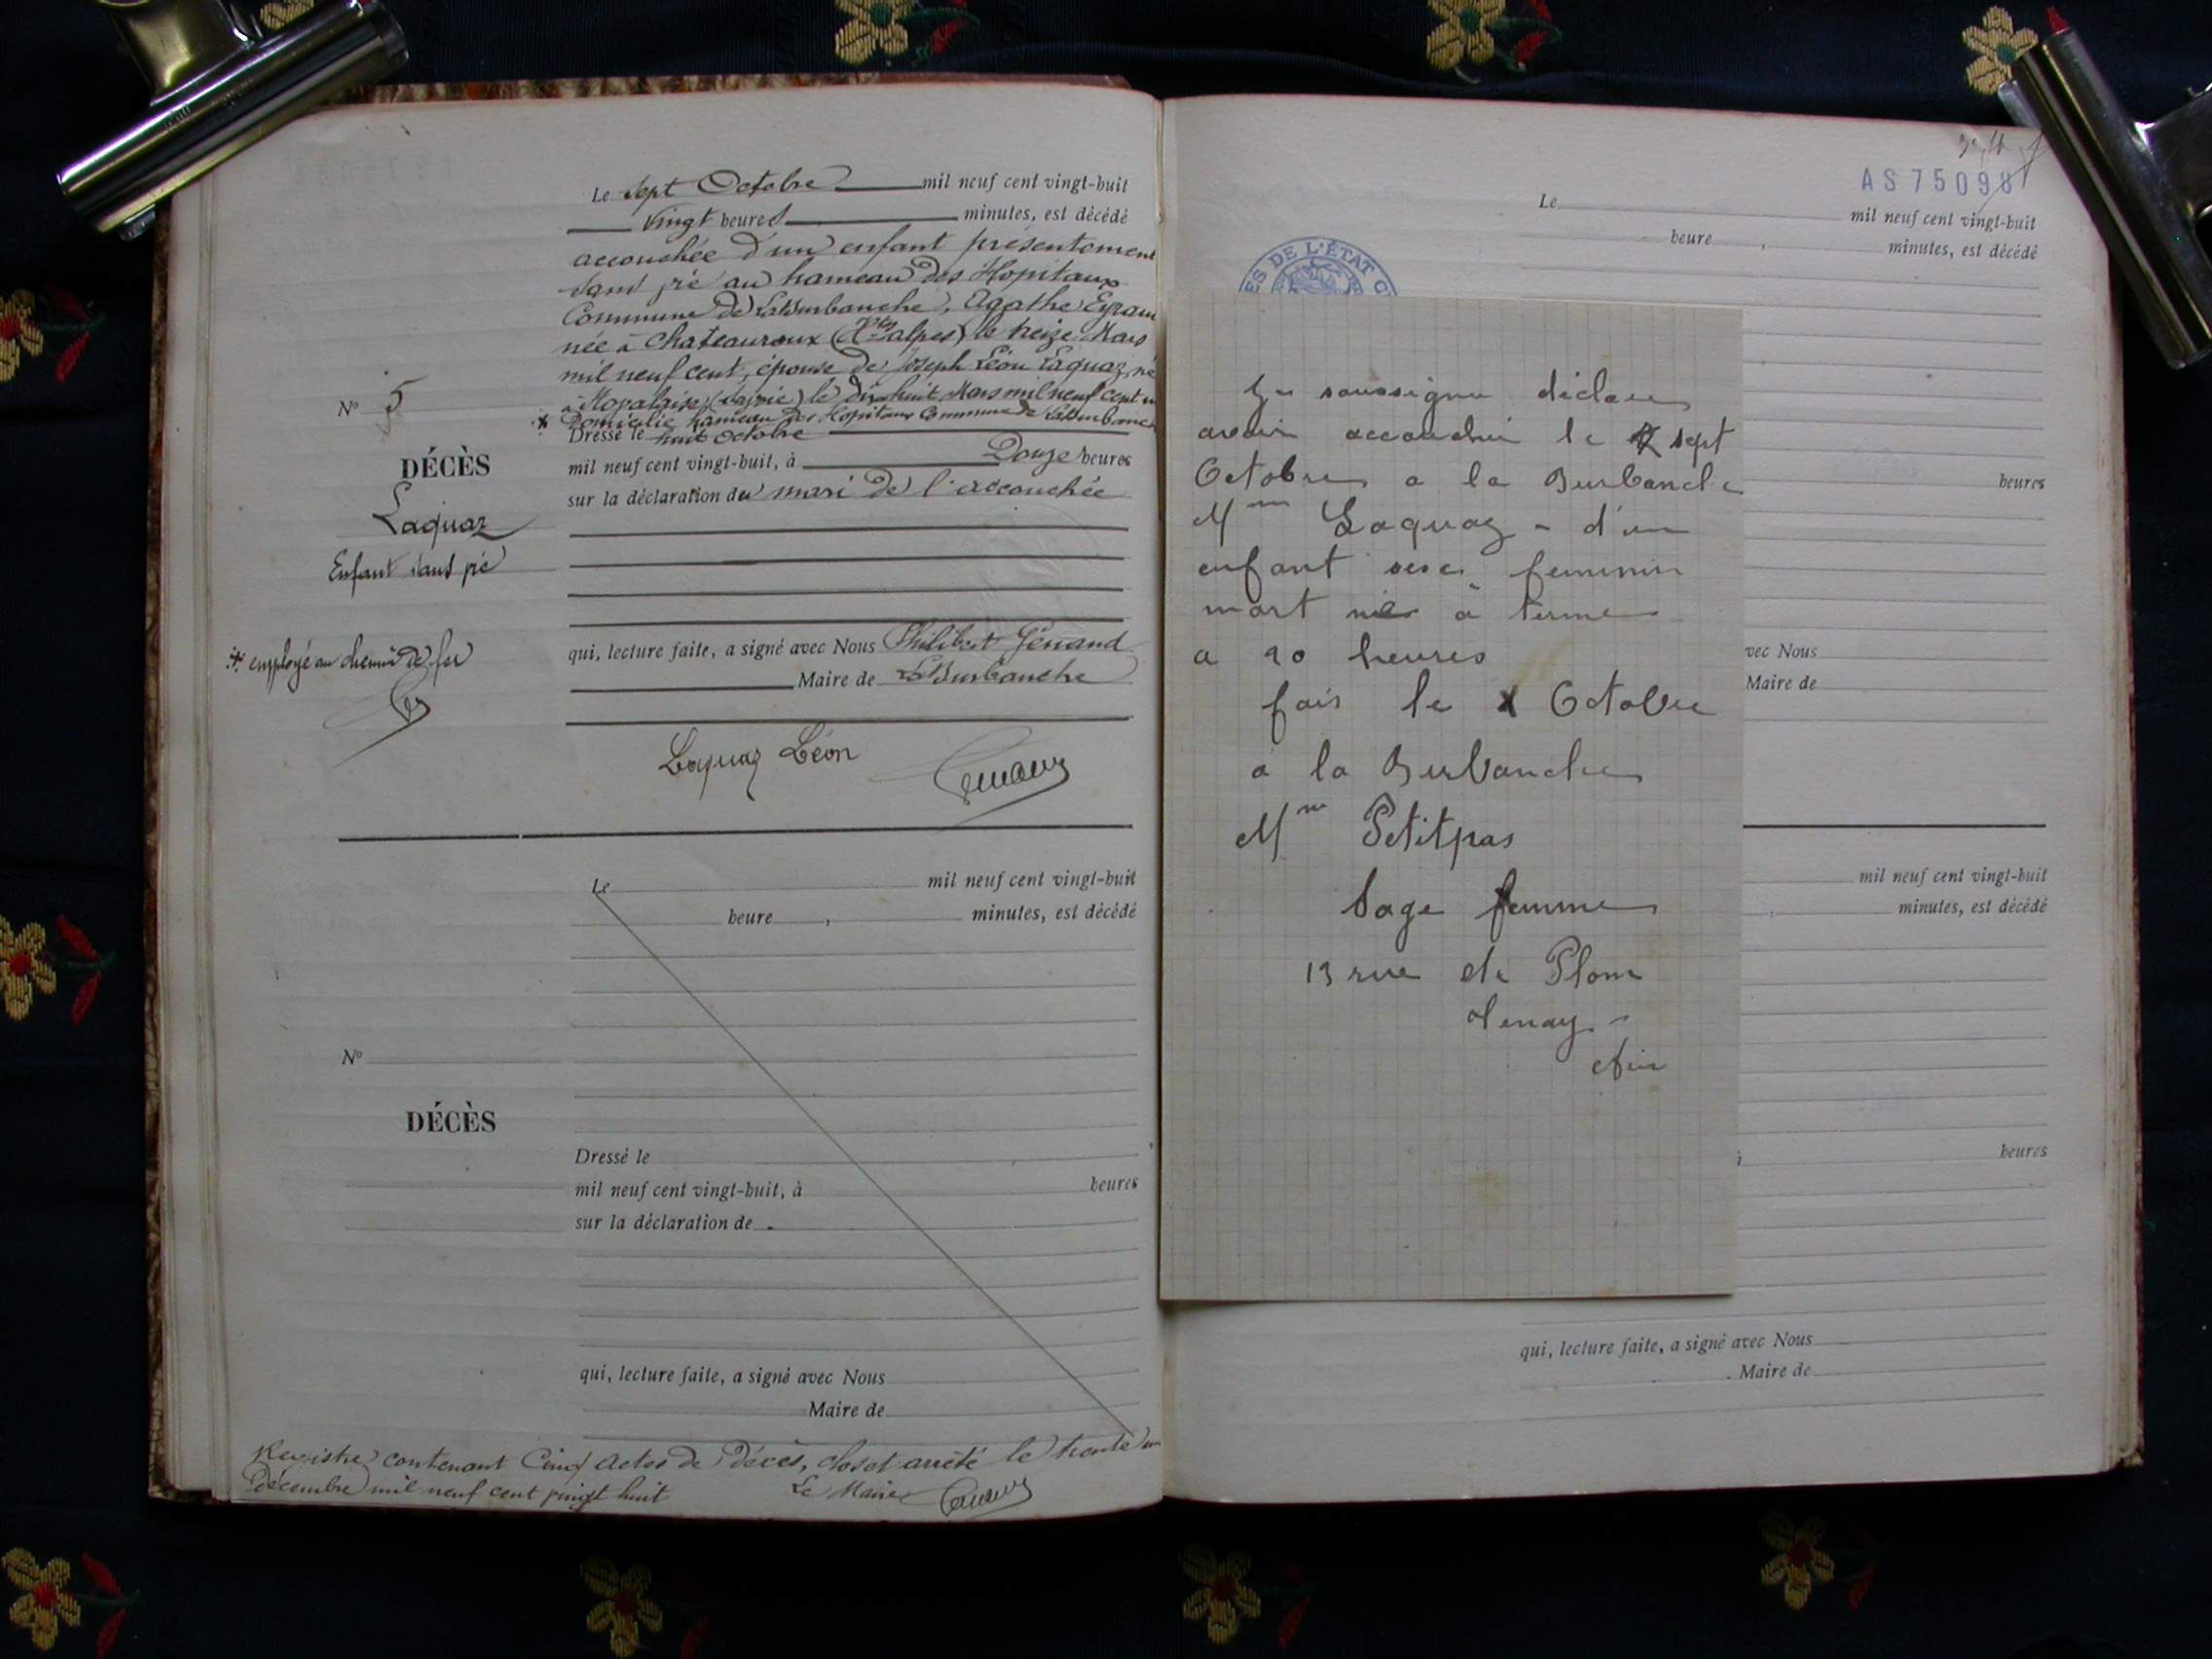 Le sept Octobre mil neuf cent vingt-huit
vingt heures minutes, est décédé
accouchée d'un enfant présentement
sans vie au hameau des Hopitaux
Commune de La Burbanche, Agathe Eyraud
née à Chateauroux (Htes alpes) le treize Mars
mil neuf cent, épouse de Joseph Léon Laquaz, né
à (Savoie) le dix huit Mars mil neuf cent un
* Domicilié hameau des Hopitaux Commune de La Burbanche
Dressé le huit Octobre
mil neuf cent vingt-huit, à Douze heures
sur la déclaration du mari de l'accouchée
qui, lecture faite, a signé avec Nous Philibert Génand
Maire de La Burbanche
Laquaz Léon
Nº 5
DÉCÈS
Laquaz
Enfant sans vie
* employé au chemin de fer
Le mil neuf cent vingt-huit
heure , minutes, est décédé
Nº
DÉCÈS
Dressé le
mil neuf cent vingt-huit, à heures
sur la déclaration de
qui, lecture faite, a signé avec Nous
Maire de
Registre contenant Cinq Actes de Décès, clos et arrêté le trente un
Décembre mil neuf cent vingt huit Le Maire
AS 75098
Le mil neuf cent vingt-huit
heure , minutes, est décédé
ES DE L'ÉTAT C
Je soussignée déclare
avoir accouchée le sept
Octobre a la Burbanche
Mme Laquaz - d'un
enfant sexe feminin
mort née à terme
a 20 heures
fais le Octobre
à la Burbanche
Mme Petitpas
Sage femme
13 rue de Plom
Tenay -
Ain
heures
vec Nous
Maire de
mil neuf cent vingt-huit
minutes, est décédé
heures
qui, lecture faite, a signé avec Nous
Maire de